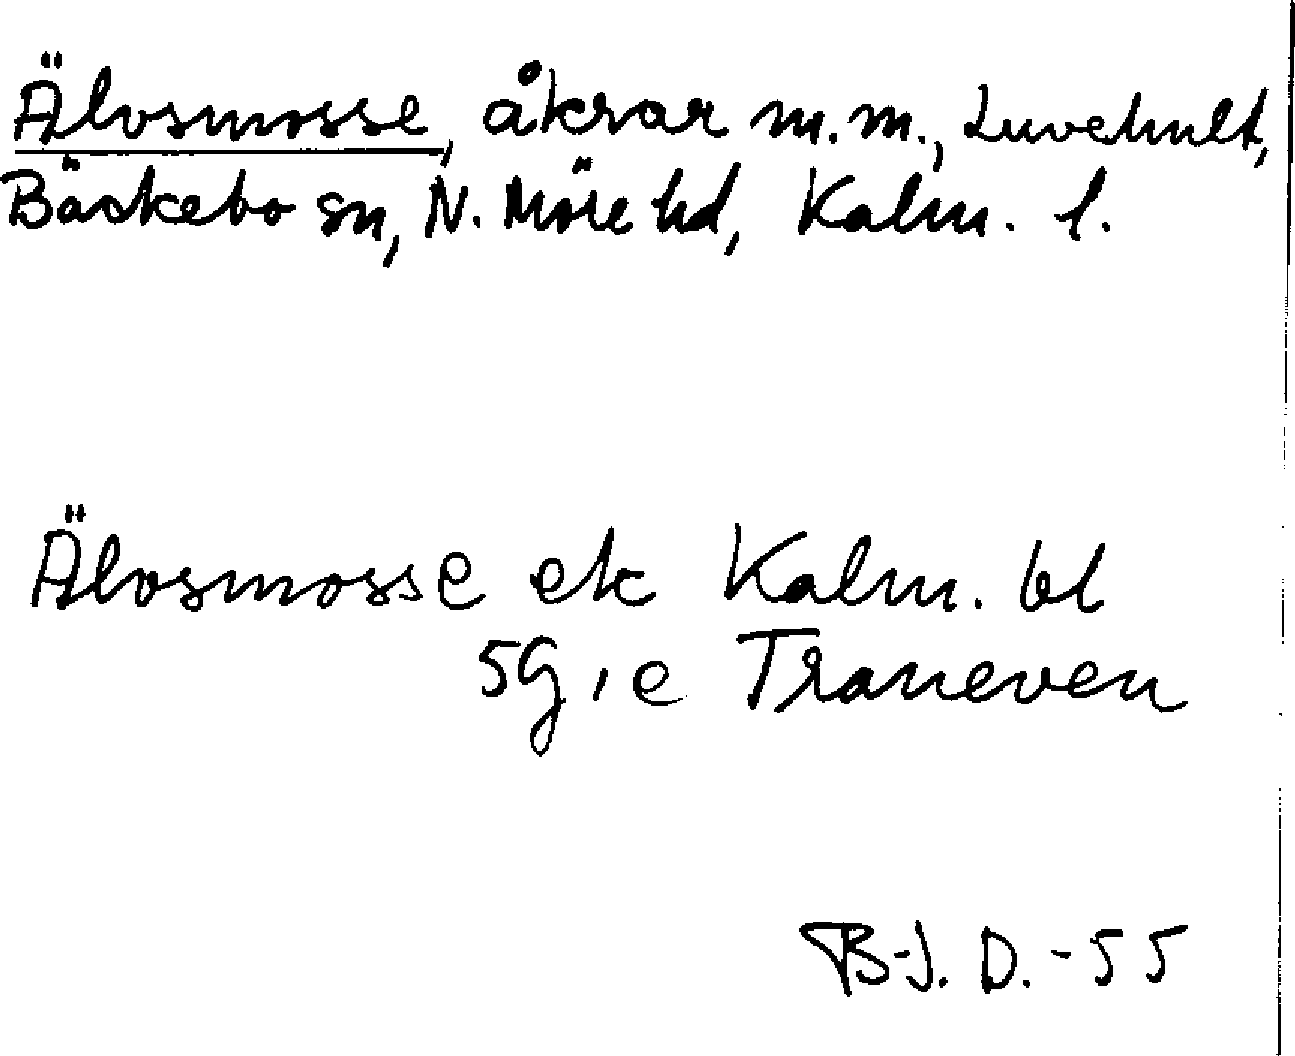 Älvsmosse, åkrar m.m., Luvehult,
Bäckebo sn, N. Möre hd, Kalm. l.
Älvosmosse ek Kalm. bl
5G, e Traneven
B-J. D. -55